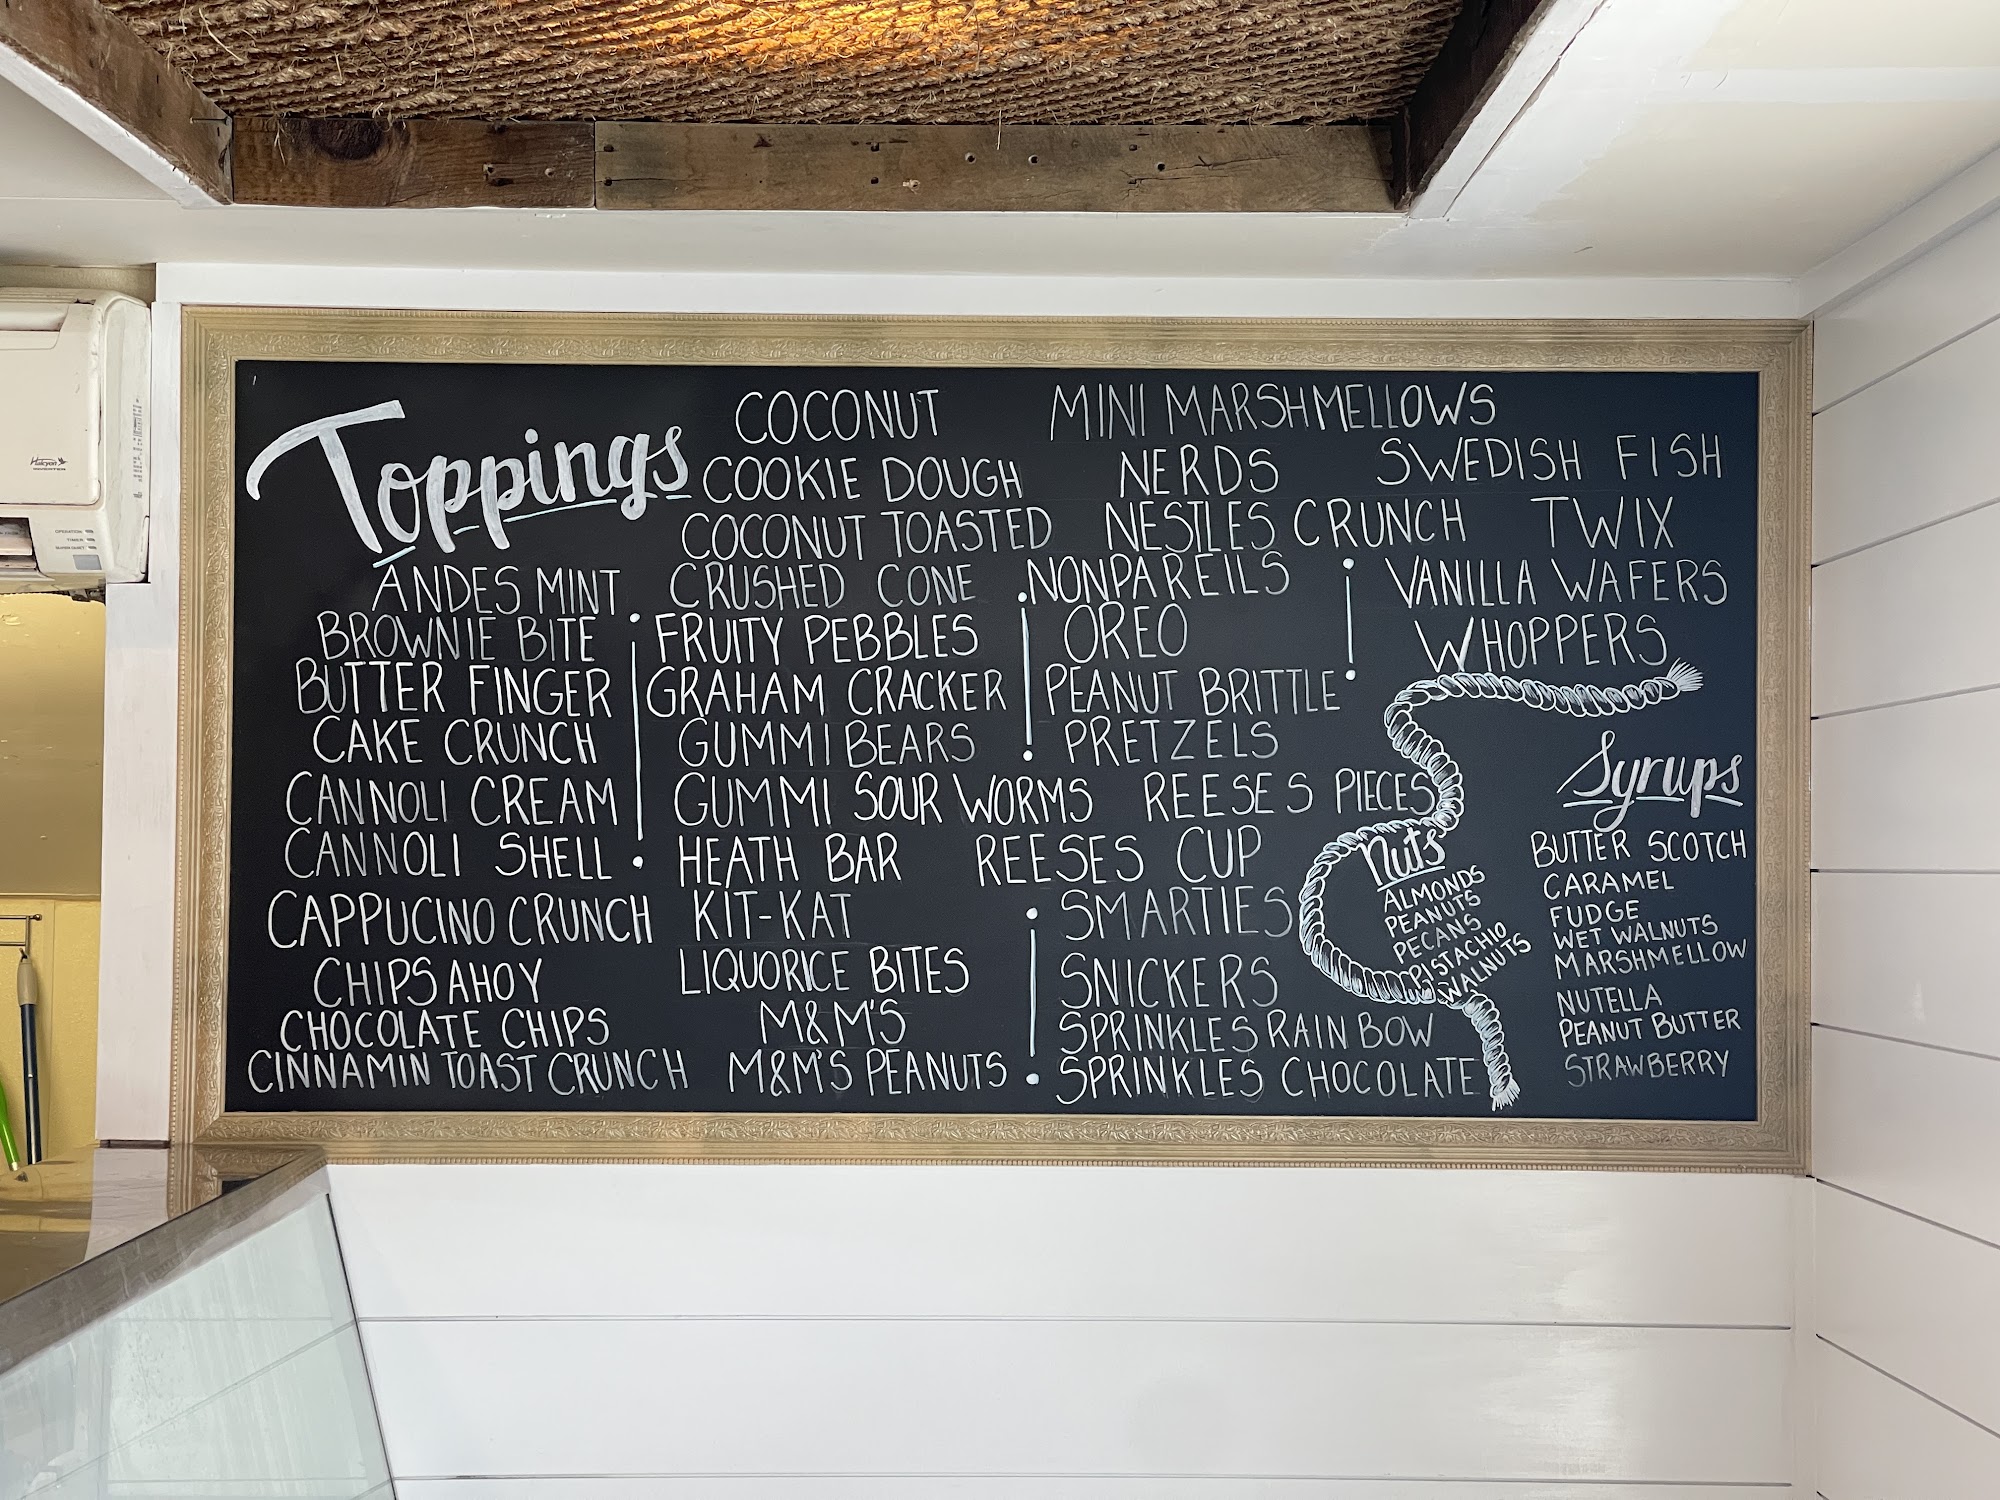 Toppings
ANDES MINT
BROWNIE BITE
BUTTER FINGER
CAKE CRUNCH
CANNOLI CREAM
CANNOLI SHELL
CAPPUCINO CRUNCH
CHIPS AHOY
CHOCOLATE CHIPS
CINNAMIN TOAST CRUNCH
COCONUT
COOKIE DOUGH
COCONUT TOASTED
CRUSHED CONE
FRUITY PEBBLES
GRAHAM CRACKER
GUMMI BEARS
GUMMI SOUR WORMS
HEATH BAR
KIT-KAT
LIQUORICE BITES
M&M'S
M&M'S PEANUTS
MINI MARSHMELLOWS
NERDS
NESTLES CRUNCH
NONPAREILS
OREO
PEANUT BRITTLE
PRETZELS
REESE S PIECES
REESES CUP
SMARTIES
SNICKERS
SPRINKLES RAINBOW
SPRINKLES CHOCOLATE
SWEDISH FISH
TWIX
VANILLA WAFERS
WHOPPERS
Nuts
ALMONDS
PEANUTS
PECANS
PISTACHIO
WALNUTS
Syrups
BUTTER SCOTCH
CARAMEL
FUDGE
WET WALNUTS
MARSHMELLOW
NUTELLA
PEANUT BUTTER
STRAWBERRY
Halcyon